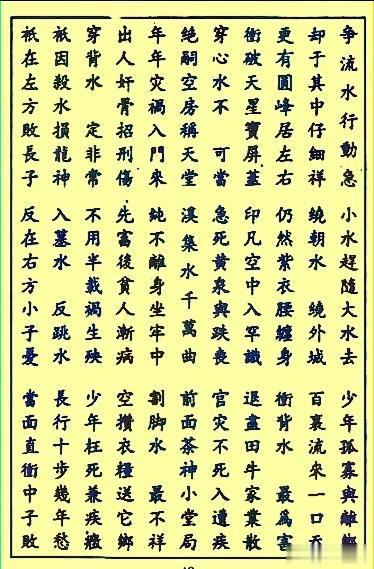 争流水行動急 小水趕隨大水去 少年孤寡與離鄉
却于其中仔細祥 繞朝水 繞外城 百裏流來一口吞
更有圓峰居左右 仍然紫衣腰纏身 衝背水 最爲害
衝破天星寶屏蓋 印凡空中入罕識 退盡田牛家業散
穿心水不 可當 急死黄泉與跌喪 官灾不死入遭疾
絕嗣空房稱天堂 溪集水千萬曲 前面茶神小堂局
年年灾禍入門來 鈍不離身坐牢中 割脚水 最不祥
出人奸骨招刑傷 先富後貧人漸病 空攢衣糧送它鄉
穿背水 定非常 不用半載禍生殃 少年枉死兼疾癥
衹因殺水損龍神 入墓水 反跳水 長行十步幾年愁
衹在左方敗長子 反在右方小子憂 當面直衝中子敗